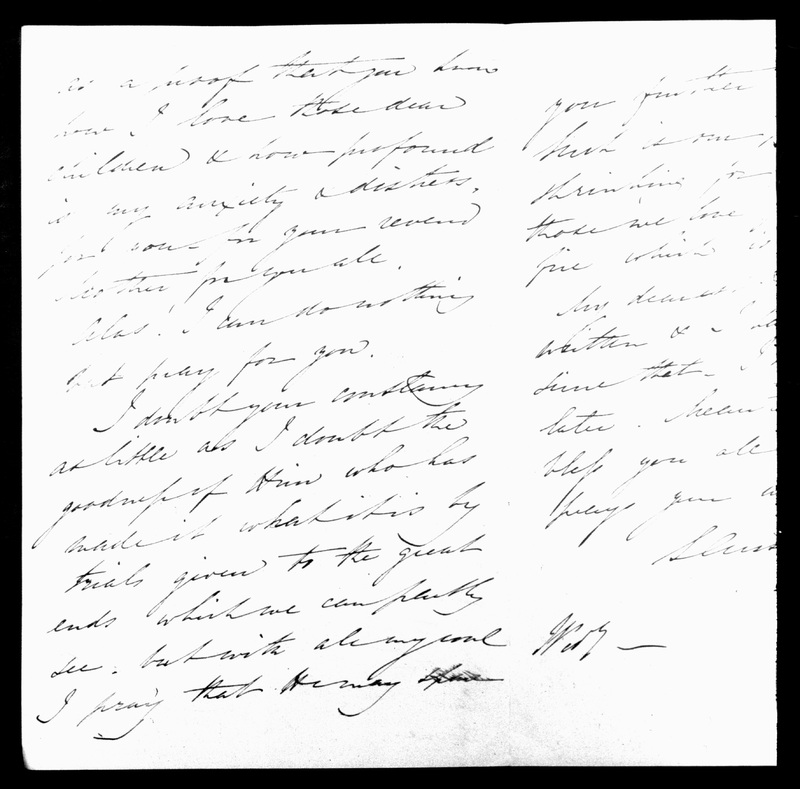 as a proof that you know
how I love those dear
children & how profound
is my anxiety & distress,
for you for your
Mother for you all.
Alas! I can do nothing
but pray for you.
I doubt your constancy
as little as I doubt the
goodness of Him who has
made it what it is by
trials given to the great
ends which we can partly
see. but with all my soul
I pray that He may spare
you further
such is our
shrinking for
those we love
fire which is
My dearest
written &
since that - I
later. Mean
bless you all
prays your
Wedy —